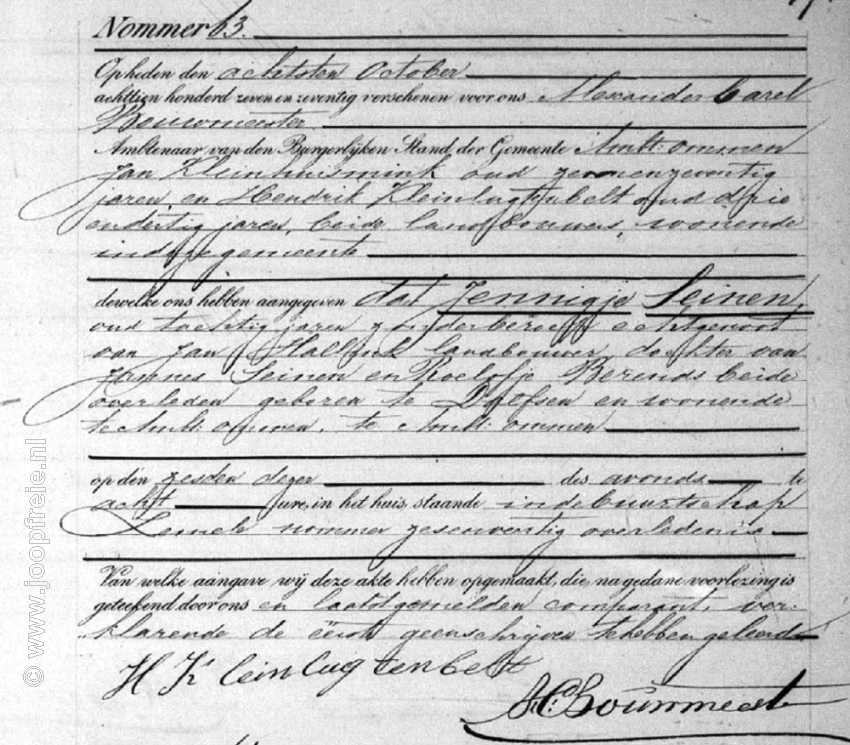 Nommer 63.
Op heden den achtsten October
achttien honderd zeven en zeventig verschenen voor ons Alexander Carel
Bouwmeester
Ambtenaar van den Burgerlijken Stand, der Gemeente Ambt: ommen
Jan Kleinhuismink oud
jaren, en Hendrik Kleinlugtenbelt oud drie
endertig jaren, beide landbouwers, wonende
in deze gemeente
dewelke ons hebben aangegeven dat Jennigje Seinen,
oud tachtig jaren zonder beroep echtgenoot
van Jan Hallink landbouwer, dochter van
Jannes Seinen en Roelofje Berends beide
overleden geboren te Dalfsen en wonende
te Ambt ommen, te Ambt: ommen
op den zesden dezer des avonds te
acht ure, in het huis, staande in de buurtschap
Lemele nommer zesenveertig overleden is
Van welke aangave wij deze akte hebben opgemaakt, die, na gedane voorlezing is
geteekend door ons en laatstgemelden comparant, ver-
klarende de eerste geen schrijven te hebben geleerd
H Kleinlugtenbelt
A.C. Bouwmeester
© www.joopfreie.nl